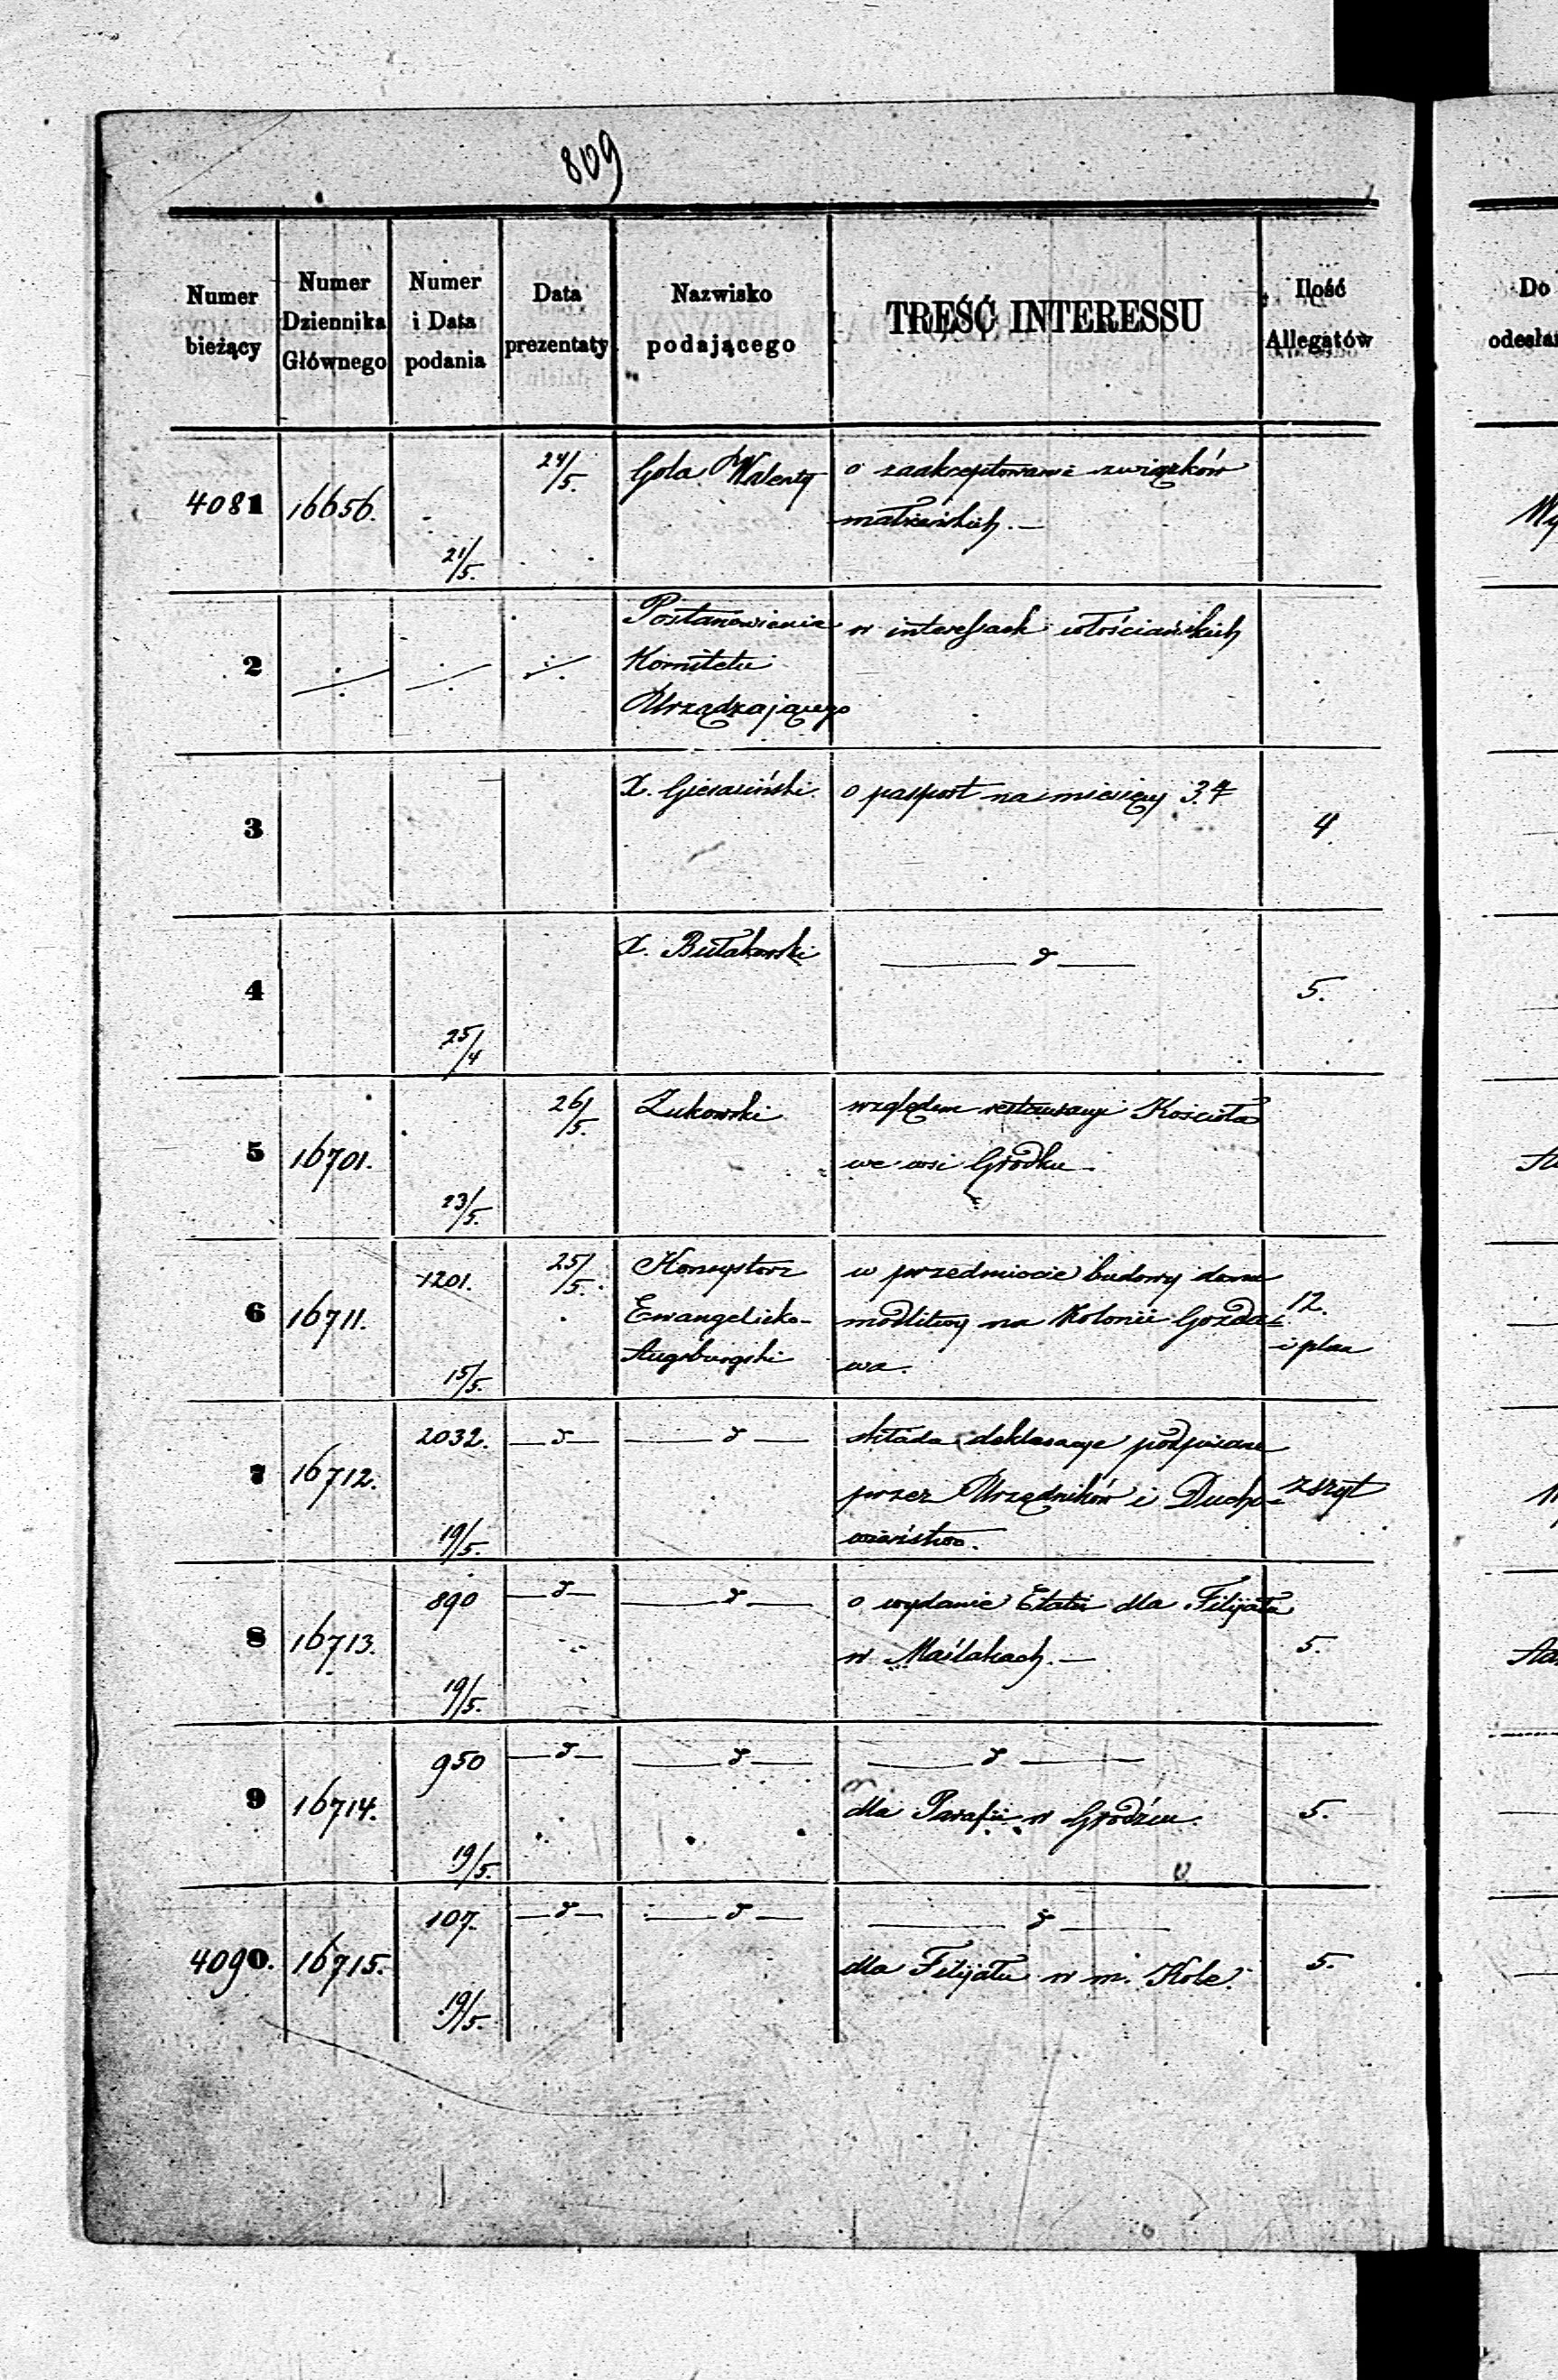 809
Numer bieżący
Numer Dziennika Głównego
Numer i Data podania
Data prezentaty
Nazwisko podającego
TREŚĆ INTERESSU
Ilość Allegatów
Do odesłan
4081 16656. 21/5. 24/5. Gola Walenty o zaakceptowanie związków
małżeńskich. —
2 ·/· ·/· ·/· Postanowienia w interessach włościańskich
Komitetu
Urządzającego
3 X. o pasport na miesięcy 3. 4
4 25/4 X. Bułakowski —— d —— 5.
5 16701. 23/5. 26/5. Żukowski względem restauracyi Kościoła
we wsi Gródku.
6 16711. 1201. 15/5. 25/5. Konsystorz w przedmiocie budowy domu 12.
Ewangelicko- modlitwy na Kolonii Gozda- i plan
Augsburgski wa.
7 16712. 2032. 19/5. — d — — d — składa deklaracye podpisane
przez Urzędników i Ducho- zszyt
wieństwo.
8 16713. 890 19/5. — d — — d — o wydanie Etatu dla Filijału 5.
w Maślakach. —
9 16714. 950 19/5. — d — — d — — d —
dla Parafii w Grodźcu. 5.
4090. 16715. 107. 19/5. — d — — d — — d —
dla Filijału w m. Kole. 5.